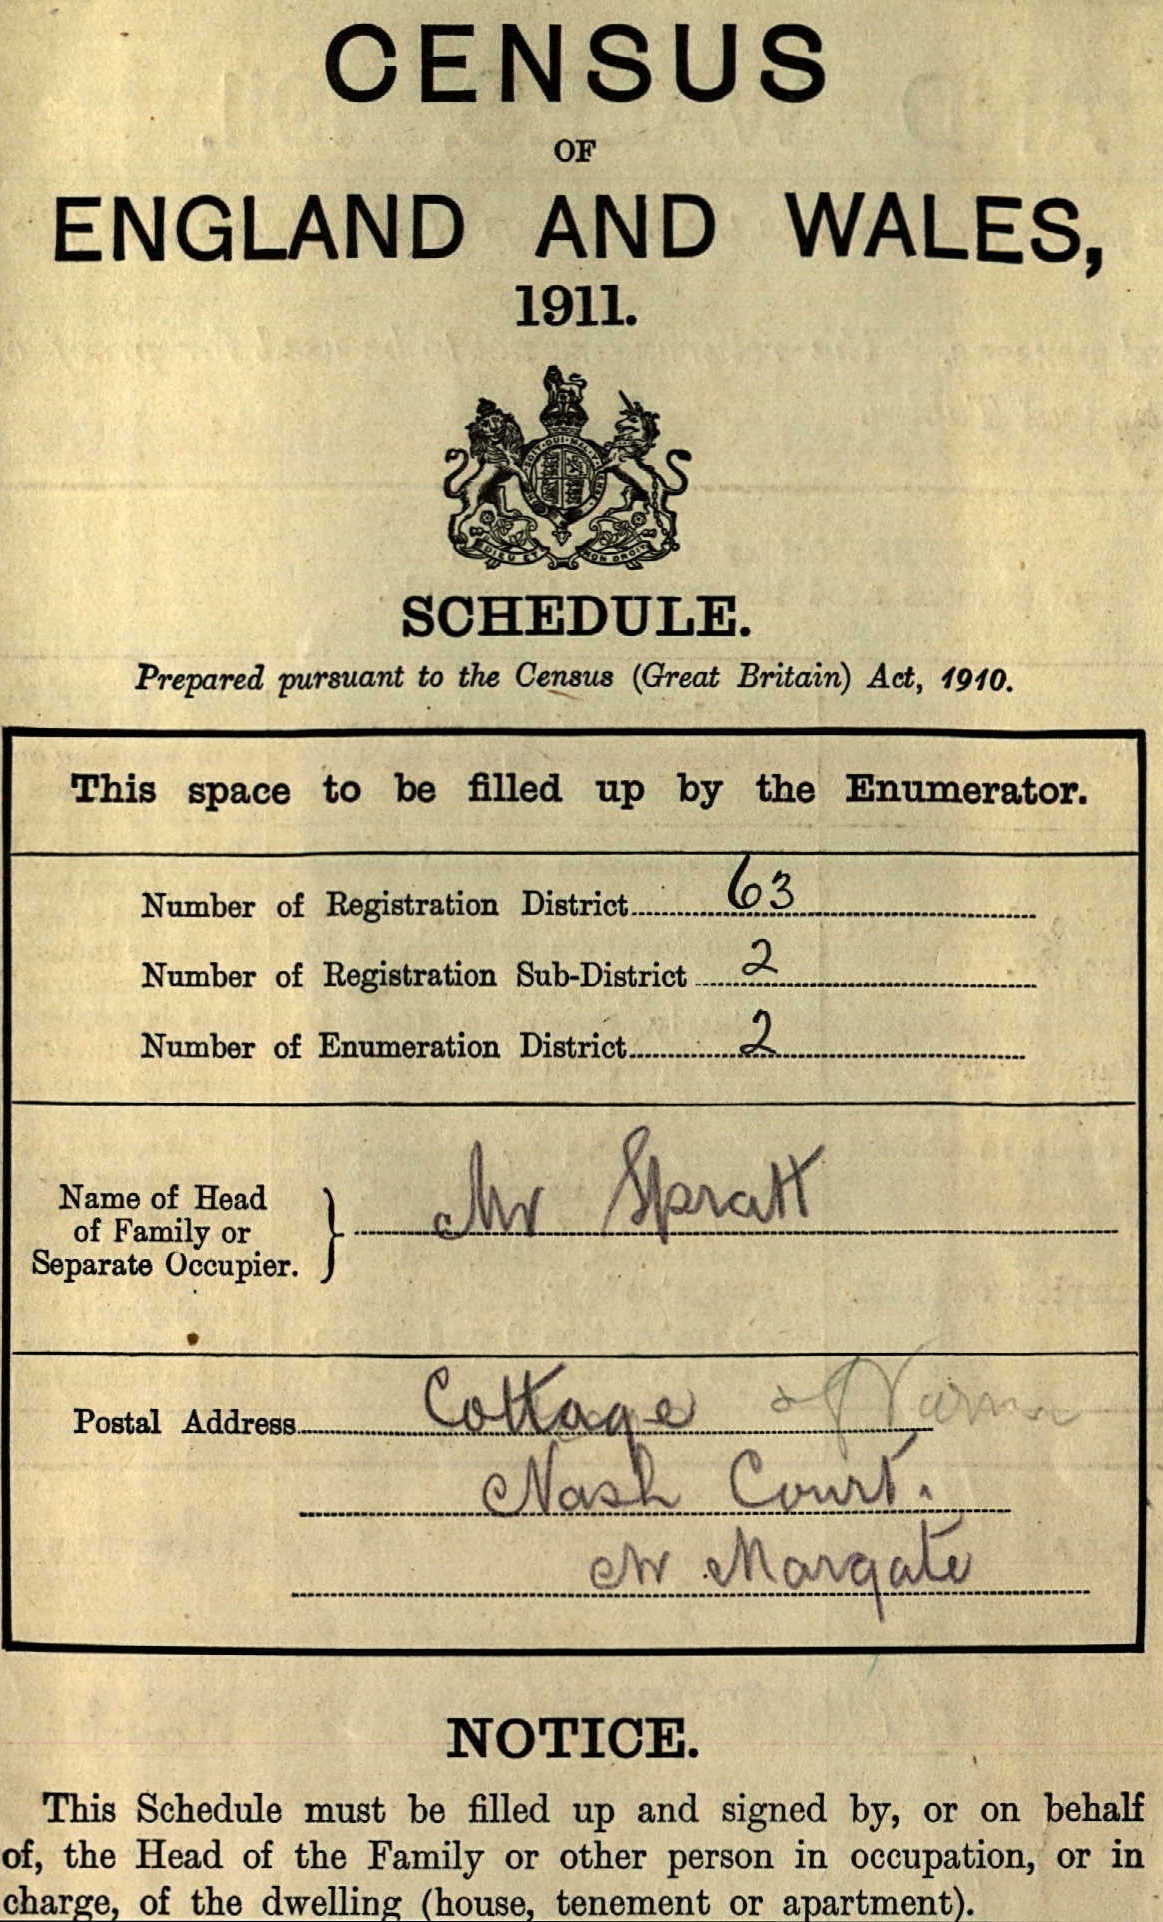 CENSUS
OF
ENGLAND AND WALES,
1911.
DIEU ET MON DROIT
SCHEDULE.
Prepared pursuant to the Census (Great Britain) Act, 1910.
This space to be filled up by the Enumerator.
Number of Registration District 63
Number of Registration Sub-District 2
Number of Enumeration District 2
Name of Head
of Family or
Separate Occupier.
Mr Spratt
Postal Address Cottage
Nash Court.
Nr Margate
NOTICE.
This Schedule must be filled up and signed by, or on behalf
of, the Head of the Family or other person in occupation, or in
charge, of the dwelling (house, tenement or apartment).